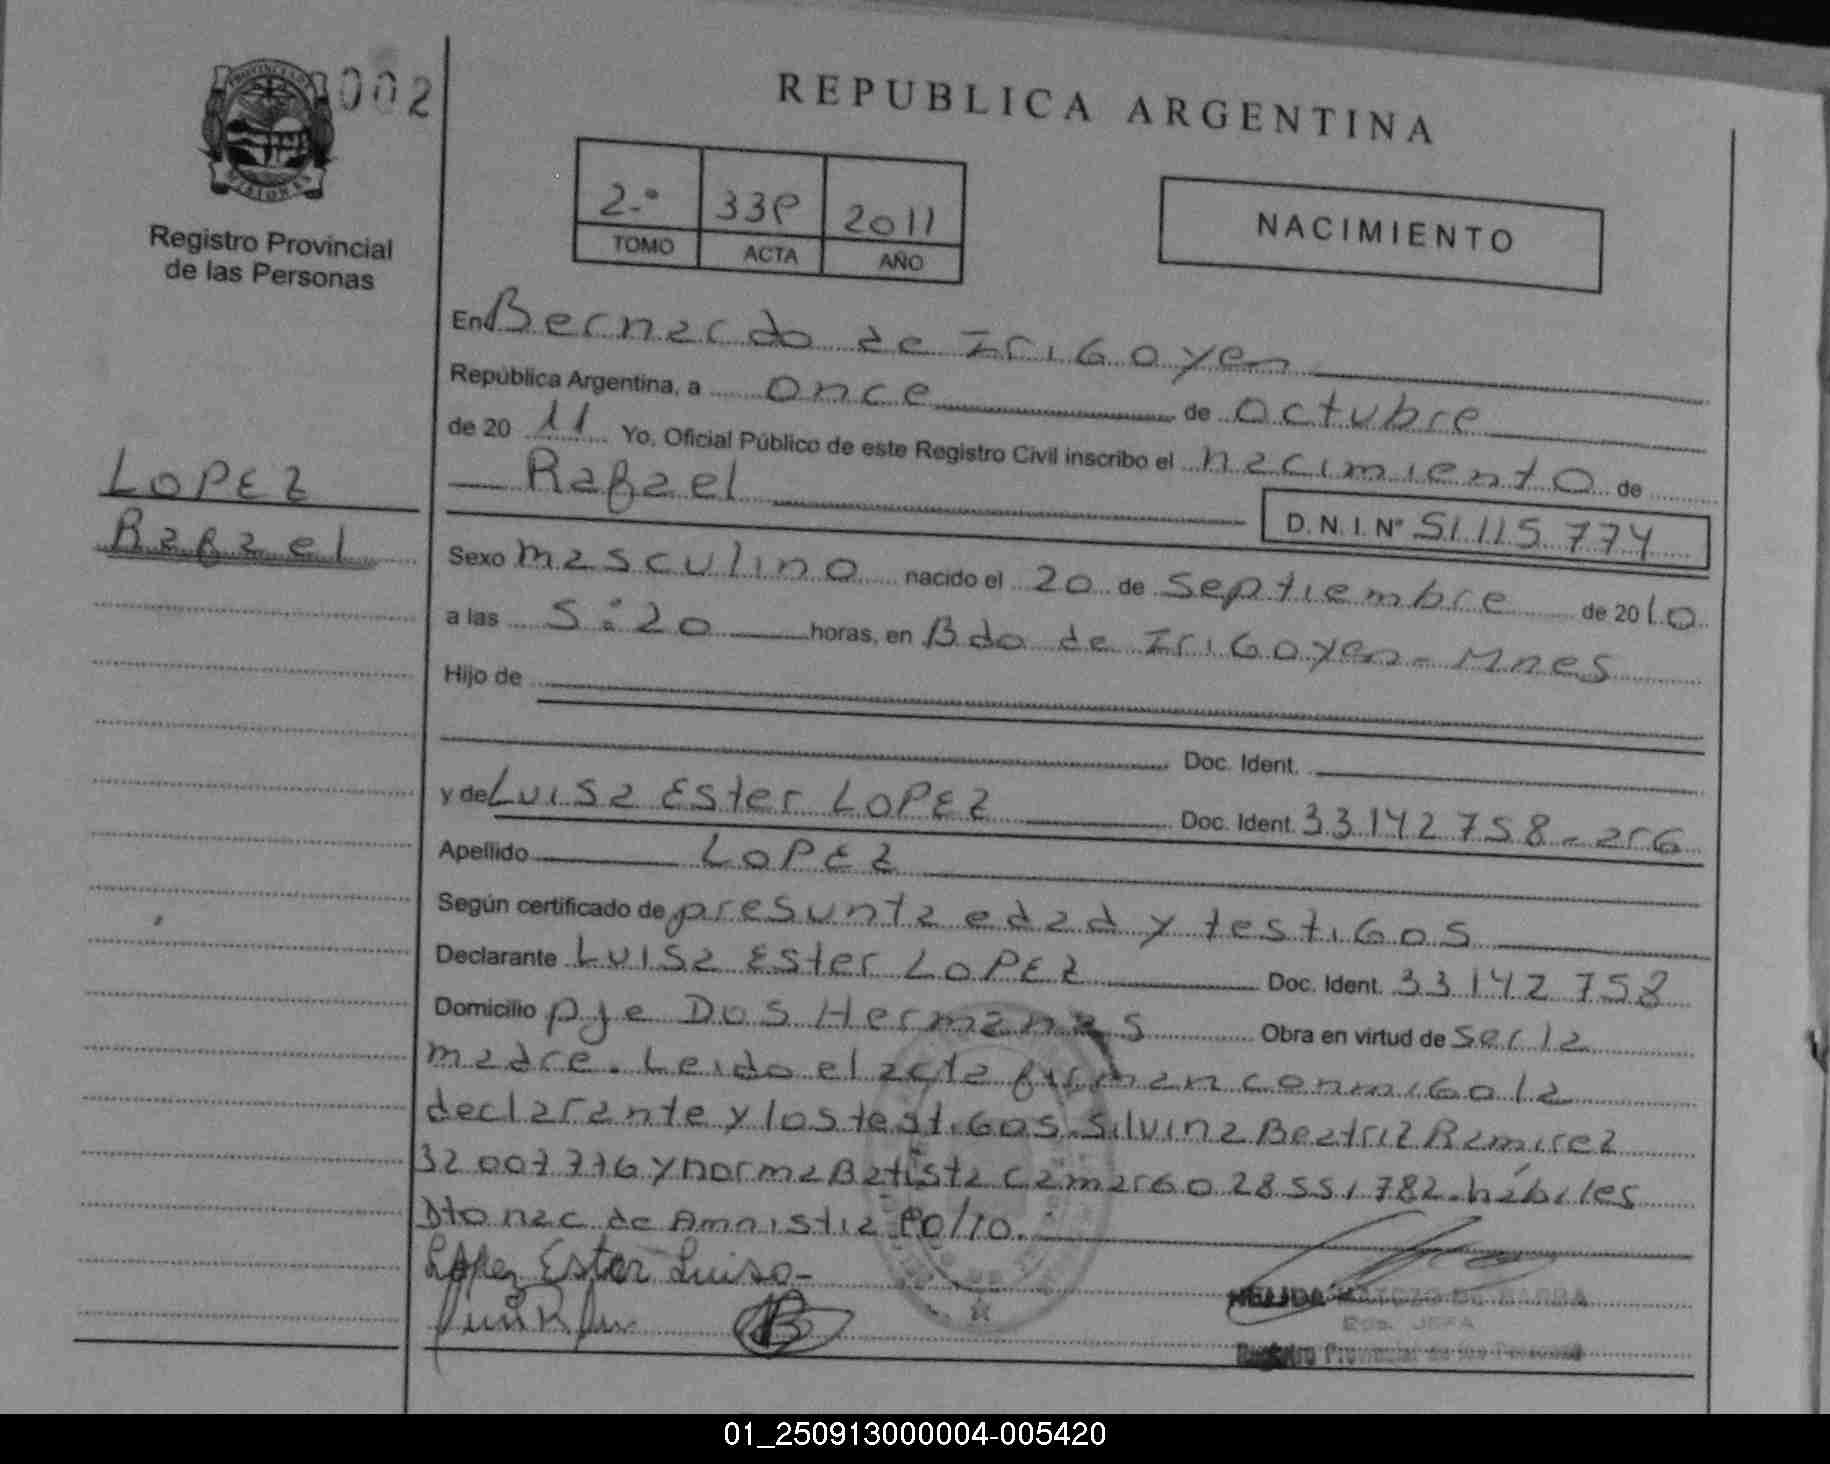 PROVINCIA DE
MISIONES
002
Registro Provincial
de las Personas
REPUBLICA ARGENTINA
2º 339 2011
TOMO ACTA AÑO
NACIMIENTO
En Bernardo de Irigoyen
República Argentina, a once de octubre
de 20 11 Yo, Oficial Público de este Registro Civil inscribo el nacimiento de
Rafael
D.N.I. Nº 51.115.774
LOPEZ
Rafael
Sexo masculino nacido el 20 de septiembre de 2010
a las 5:20 horas, en Bdo de Irigoyen - Mnes
Hijo de
Doc. Ident.
y de Luisa Ester LOPEZ Doc. Ident. 33142758-arg
Apellido LOPEZ
Según certificado de presunta edad y testigos
Declarante Luisa Ester LOPEZ Doc. Ident. 33142758
Domicilio pje Dos Hermanas Obra en virtud de ser la
madre. Leido el acta firman conmigo la
declarante y los testigos. Silvina Beatriz Ramirez
32007776 y norma Batista Camargo 28551782. hábiles
Dto nac de Amnistia 90/10.
López Ester Luisa-
Registro Provincial de las Personas
01_250913000004-005420